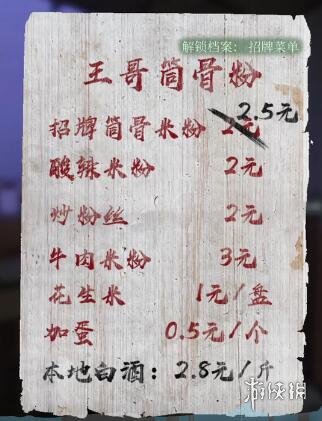 解锁档案：招牌菜单
王哥筒骨粉
招牌筒骨米粉 2元 2.5元
酸辣米粉 2元
炒粉丝 2元
牛肉米粉 3元
花生米 1元/盘
加蛋 0.5元/个
本地白酒：2.8元/斤
游侠网